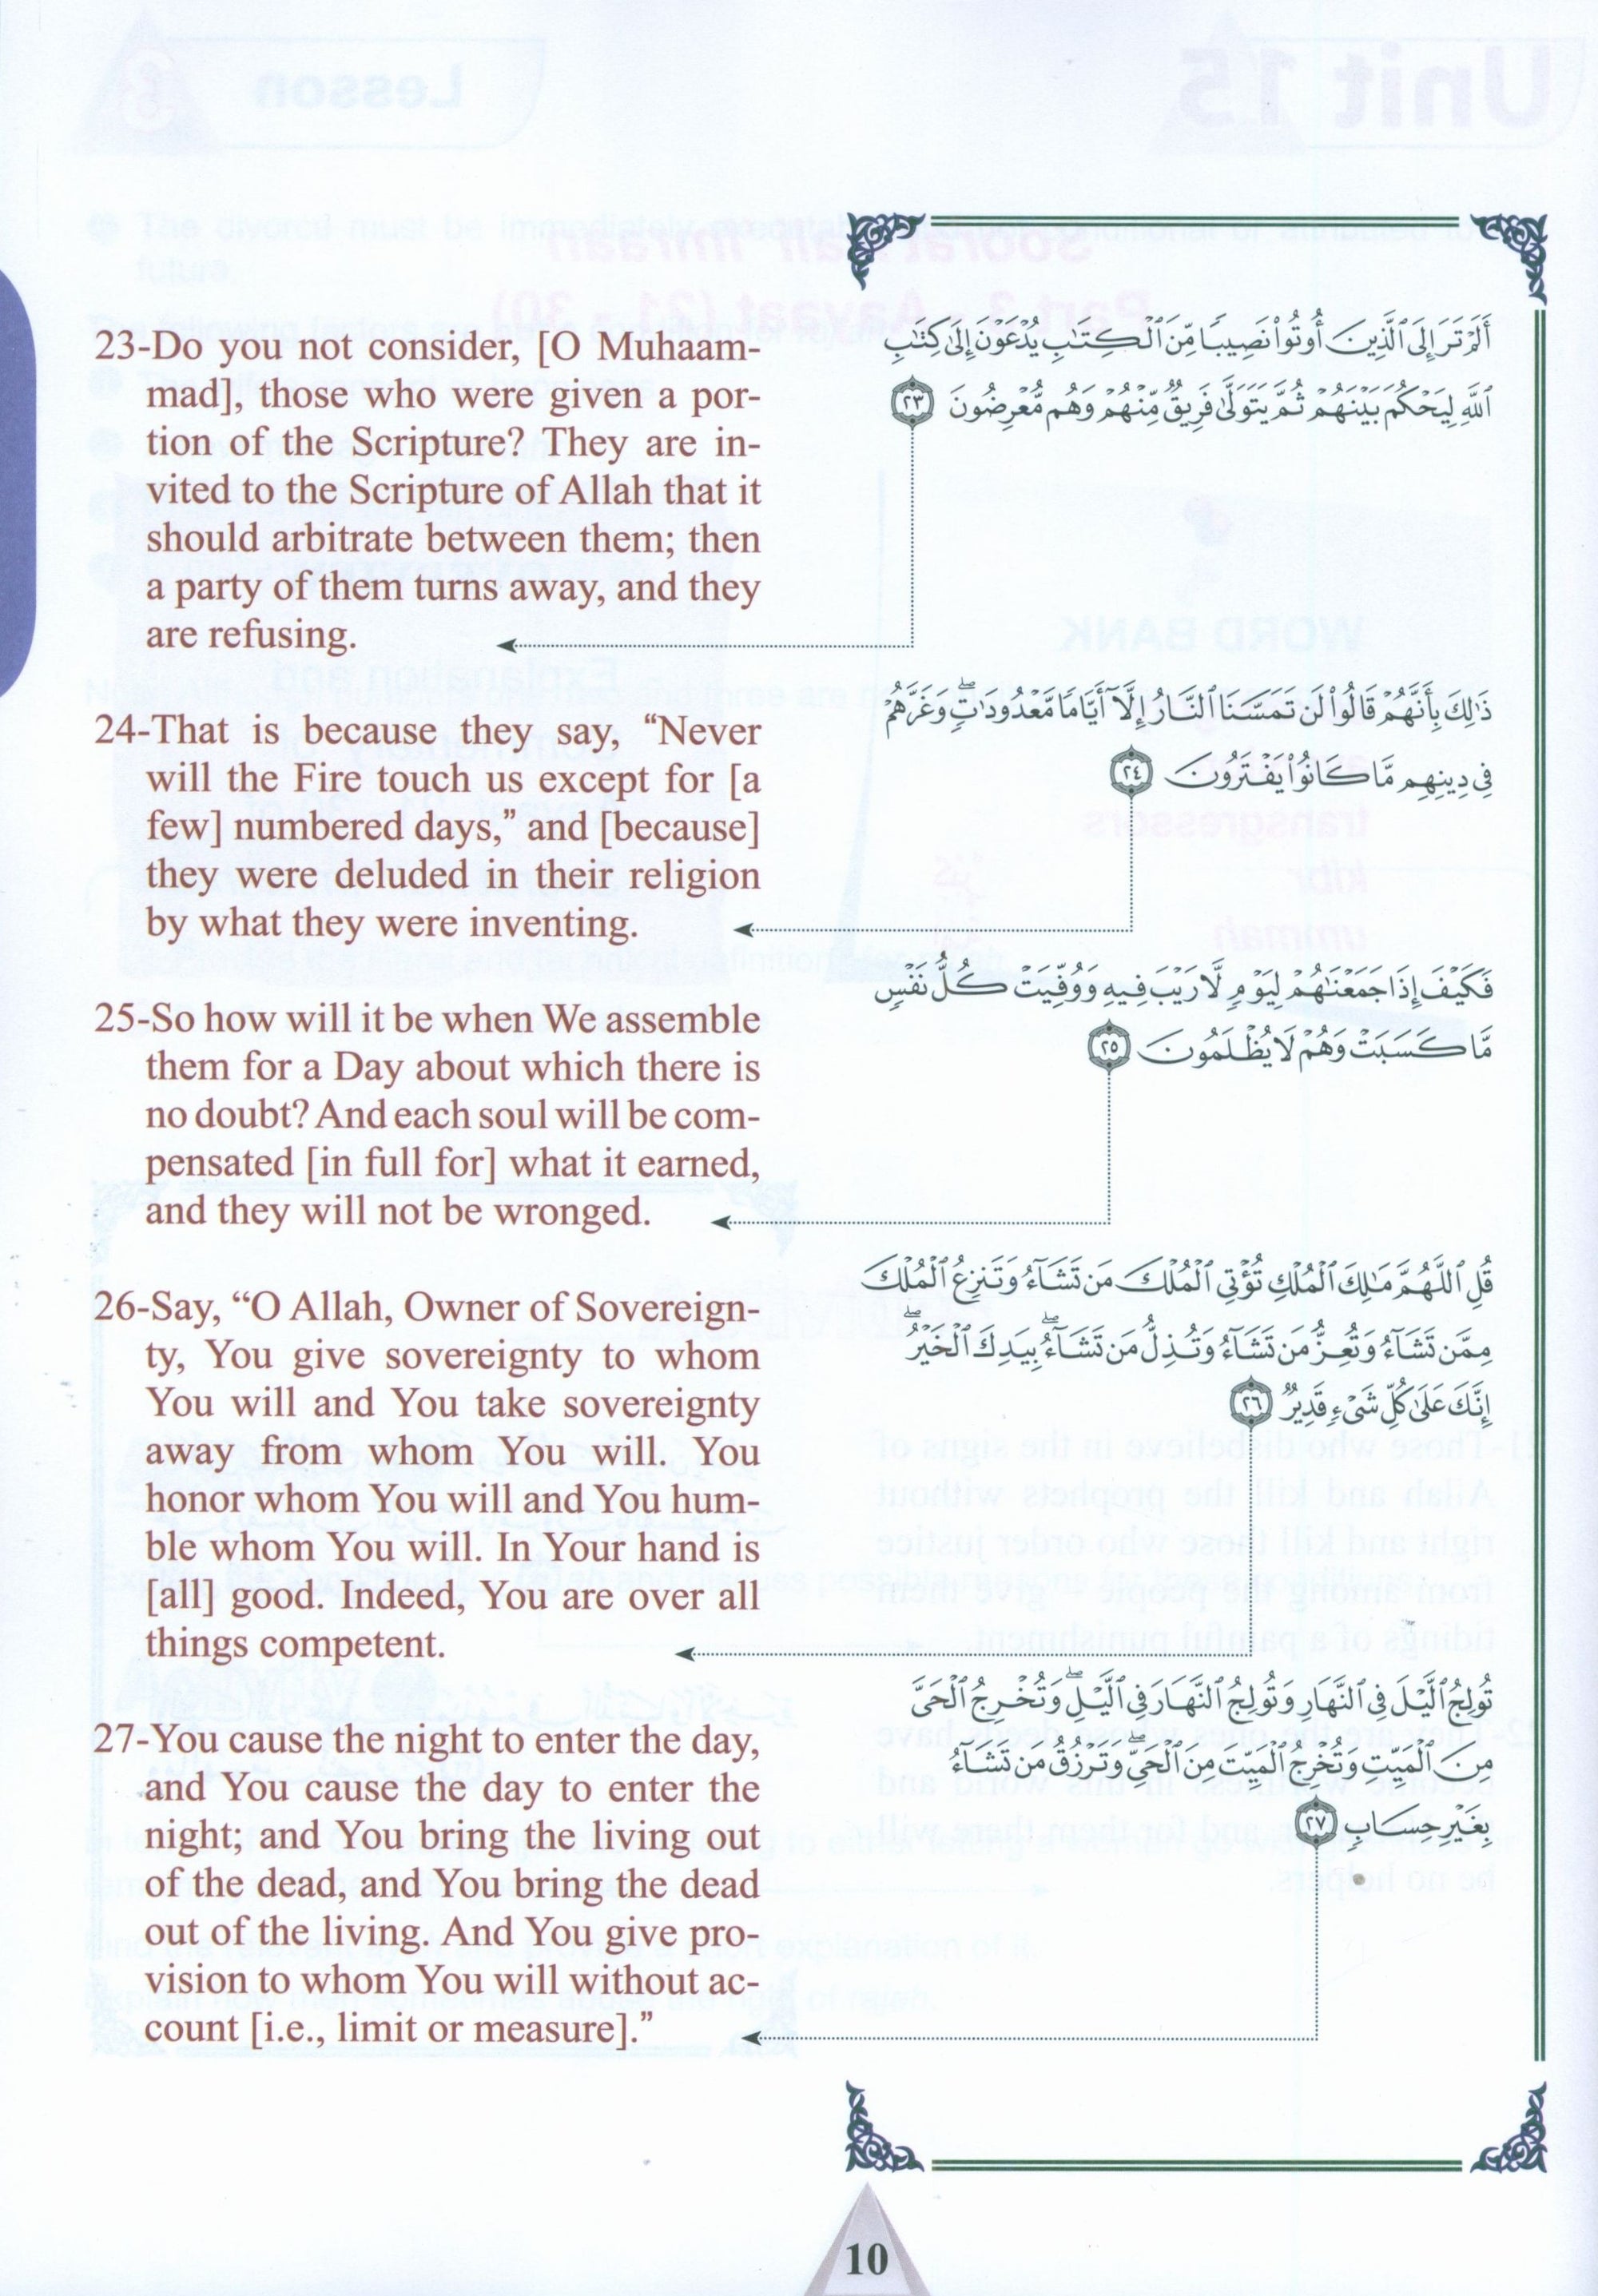 23-Do you not consider, [O Muhaam-
mad], those who were given a por-
tion of the Scripture? They are in-
vited to the Scripture of Allah that it
should arbitrate between them; then
a party of them turns away, and they
are refusing.
أَلَمْ تَرَ إِلَى ٱلَّذِينَ أُوتُوا۟ نَصِيبًا مِّنَ ٱلْكِتَٰبِ يُدْعَوْنَ إِلَىٰ كِتَٰبِ
ٱللَّهِ لِيَحْكُمَ بَيْنَهُمْ ثُمَّ يَتَوَلَّىٰ فَرِيقٌ مِّنْهُمْ وَهُم مُّعْرِضُونَ ٢٣
24-That is because they say, “Never
will the Fire touch us except for [a
few] numbered days,” and [because]
they were deluded in their religion
by what they were inventing.
ذَٰلِكَ بِأَنَّهُمْ قَالُوا۟ لَن تَمَسَّنَا ٱلنَّارُ إِلَّآ أَيَّامًا مَّعْدُودَٰتٍ ۖ وَغَرَّهُمْ
فِى دِينِهِم مَّا كَانُوا۟ يَفْتَرُونَ ٢٤
25-So how will it be when We assemble
them for a Day about which there is
no doubt? And each soul will be com-
pensated [in full for] what it earned,
and they will not be wronged.
فَكَيْفَ إِذَا جَمَعْنَٰهُمْ لِيَوْمٍ لَّا رَيْبَ فِيهِ وَوُفِّيَتْ كُلُّ نَفْسٍ
مَّا كَسَبَتْ وَهُمْ لَا يُظْلَمُونَ ٢٥
26-Say, “O Allah, Owner of Sovereign-
ty, You give sovereignty to whom
You will and You take sovereignty
away from whom You will. You
honor whom You will and You hum-
ble whom You will. In Your hand is
[all] good. Indeed, You are over all
things competent.
قُلِ ٱللَّهُمَّ مَٰلِكَ ٱلْمُلْكِ تُؤْتِى ٱلْمُلْكَ مَن تَشَآءُ وَتَنزِعُ ٱلْمُلْكَ
مِمَّن تَشَآءُ وَتُعِزُّ مَن تَشَآءُ وَتُذِلُّ مَن تَشَآءُ ۖ بِيَدِكَ ٱلْخَيْرُ ۖ
إِنَّكَ عَلَىٰ كُلِّ شَىْءٍ قَدِيرٌ ٢٦
27-You cause the night to enter the day,
and You cause the day to enter the
night; and You bring the living out
of the dead, and You bring the dead
out of the living. And You give pro-
vision to whom You will without ac-
count [i.e., limit or measure].”
تُولِجُ ٱلَّيْلَ فِى ٱلنَّهَارِ وَتُولِجُ ٱلنَّهَارَ فِى ٱلَّيْلِ ۖ وَتُخْرِجُ ٱلْحَىَّ
مِنَ ٱلْمَيِّتِ وَتُخْرِجُ ٱلْمَيِّتَ مِنَ ٱلْحَىِّ ۖ وَتَرْزُقُ مَن تَشَآءُ
بِغَيْرِ حِسَابٍ ٢٧
10